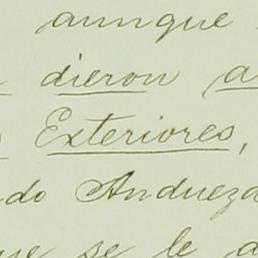 aunque
dieron a
Exteriores,
do Andueza
que se le d